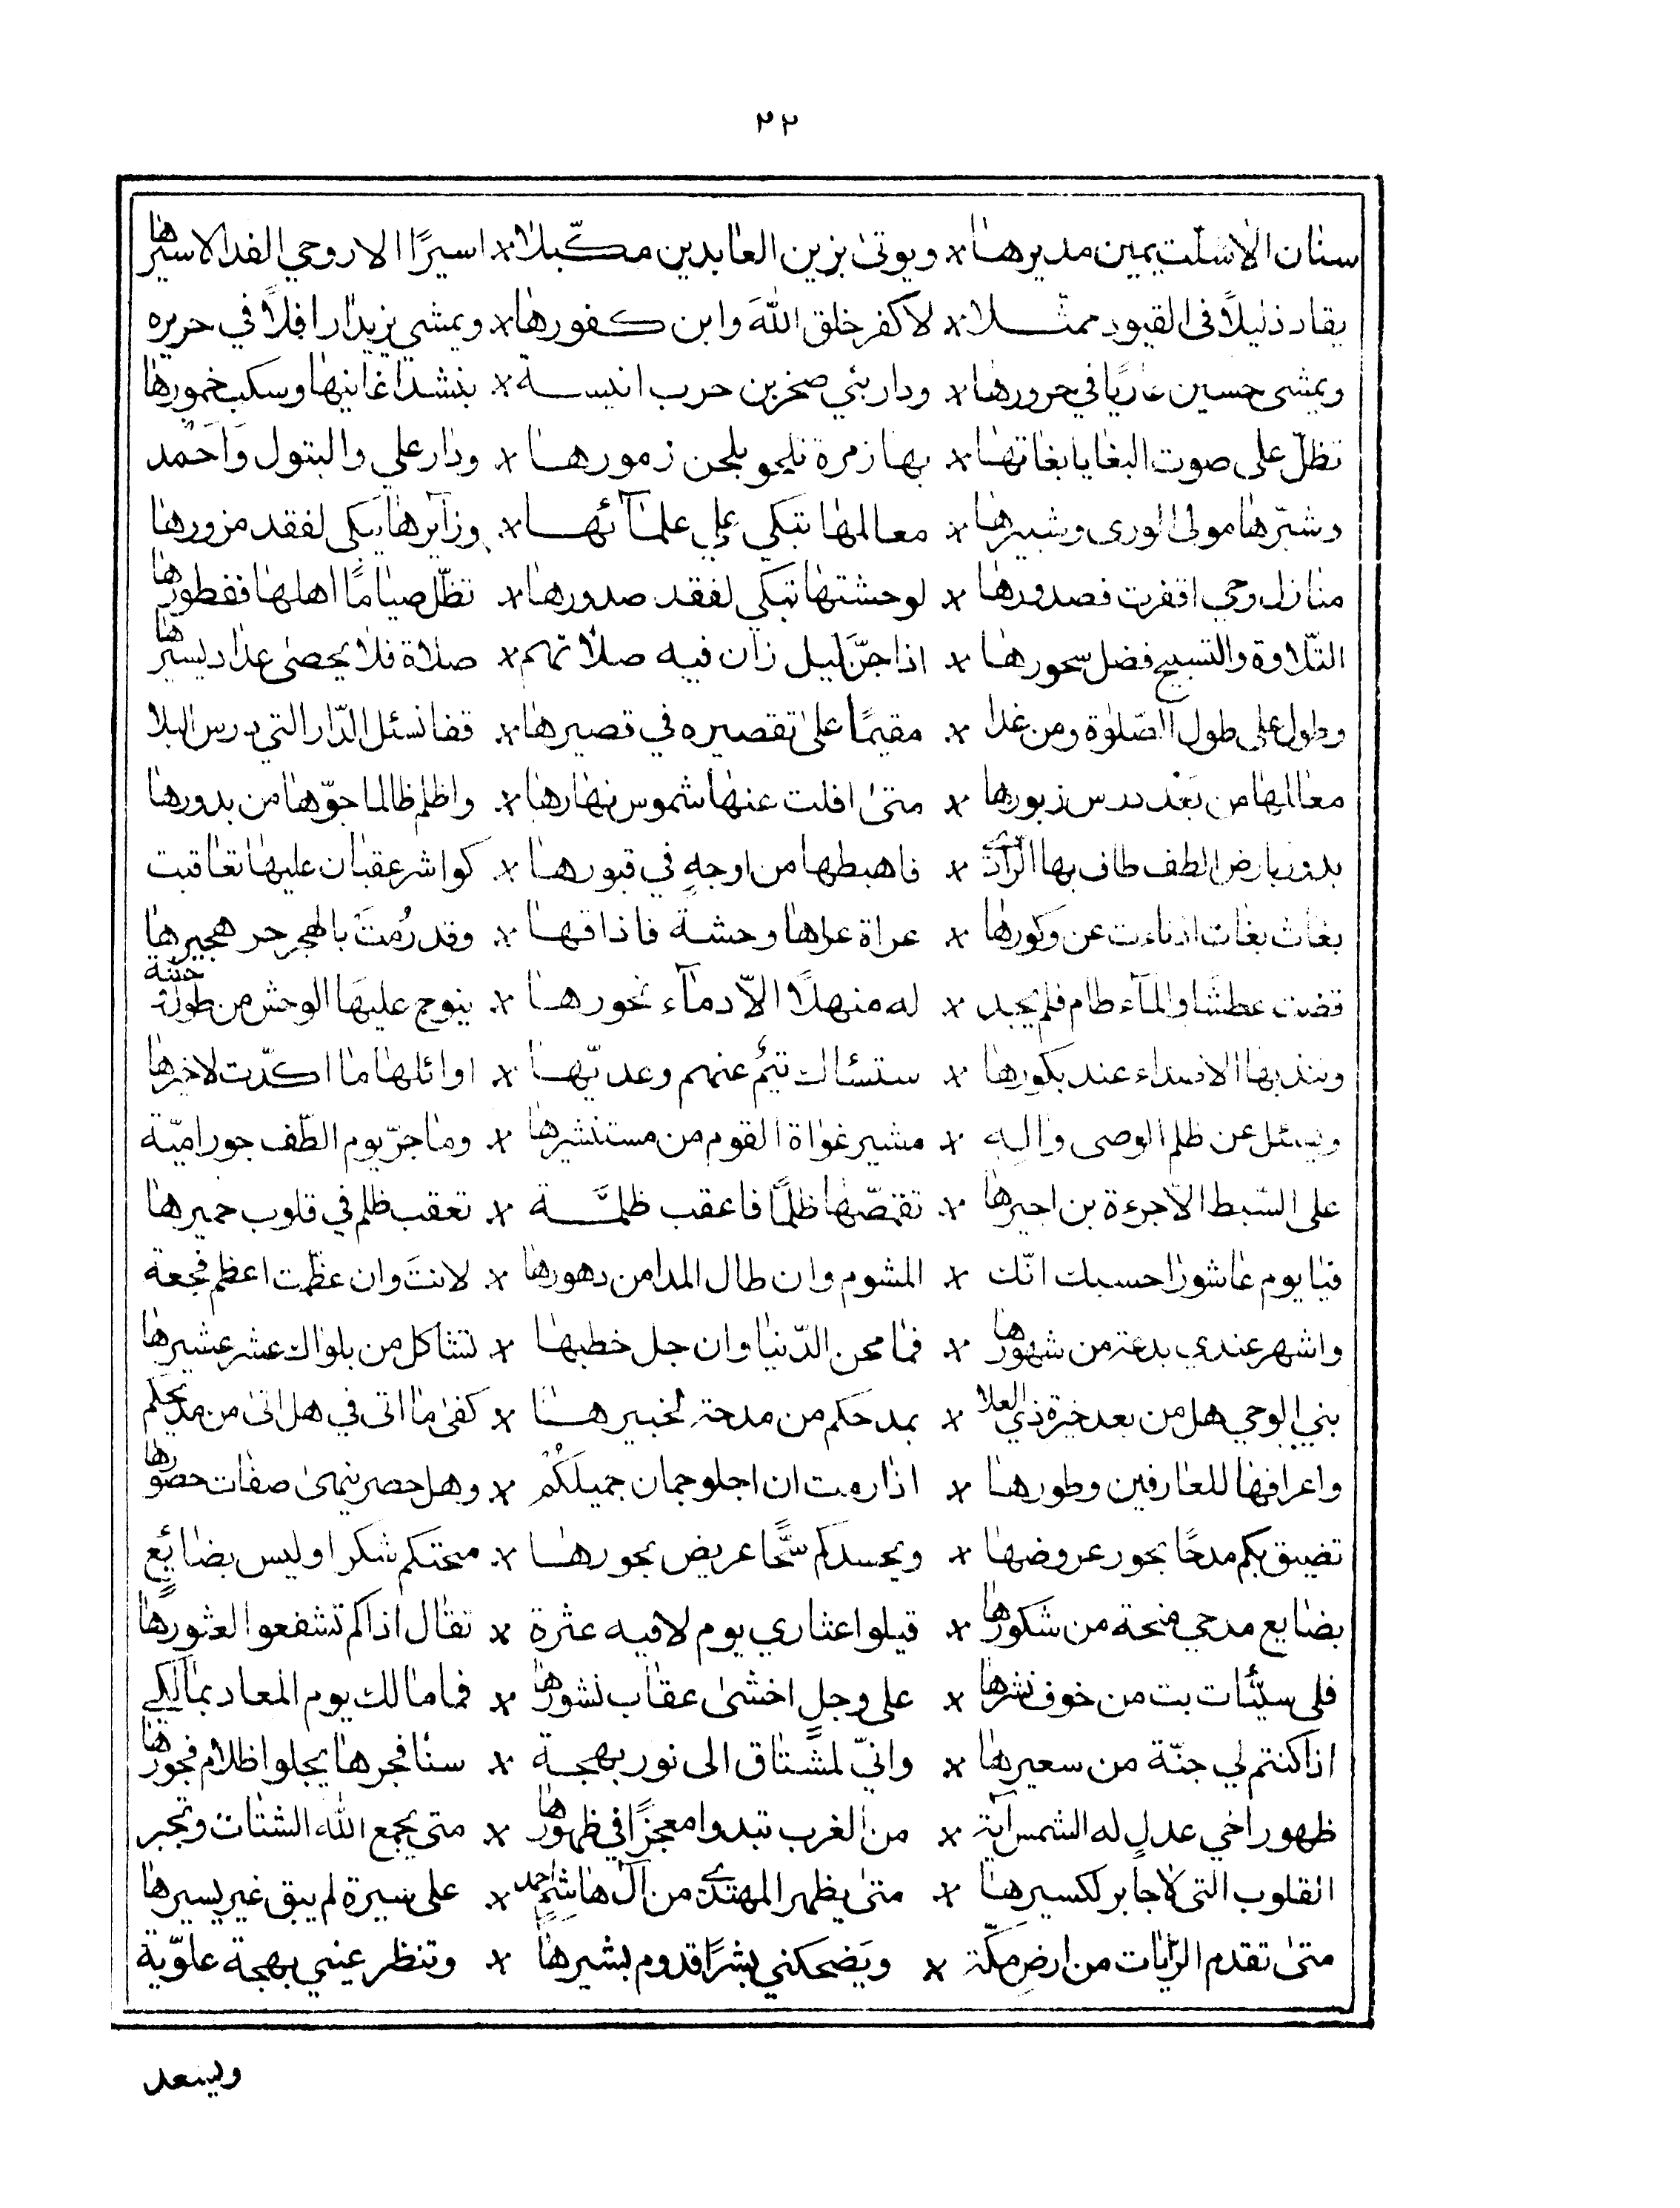 ٢٢
سنان الا شلّت يمين مديرها * ويوتى بزين العابدين مكبّلا * اسيرًا الا روحي الفدا لاسيرها
يقاد ذليلاً في القيود ممثلا * لاكفر خلق الله وابن كفورها * ويمشي يزيدٌ رافلاً في حريره
ويمشي حسين عاريًا في حرورها * ودار بني صخر بن حرب انيسة * بنشد اغانيها وسكب خمورها
تظلّ على صوت البغايا بغاتها * بها زمرة تلهو بلحن زمورها * ودار علي والبتول واحمد
وشبّرها مولى الورى وشبيرها * معالمها تبكي على علمائها * وزايرها يبكي لفقد مزورها
منازل وحي اقفرت فصدورها * لوحشتها تبكي لفقد صدورها * تظلّ صيامًا اهلها ففطورها
التّلاوة والتسبيح فضل سحورها * اذا جنّ ليل زان فيه صلاتهم * صلاة فلا يحصى عداد يسيرها
وطول على طول الصّلوة ومن غدا * مقيمًا على تقصيره في قصيرها * قفا نسئل الدّار التي درس البلا
معالمها من بعد درس زبورها * متى افلت عنها شموس نهارها * واظلم ظالما جوّها من بدورها
بدور بارض الطف طاف بها الرّدى * فاهبطها من اوجهٍ في قبورها * كواشر عقبان عليها تعاقبت
بغاث بغات اذ ناءت عن وكورها * عراة عراها وحشة فاذاقها * وقد رُمت بالهجر حر هجيرها
قضت عطشًا والماء طام فلم يجد * له منهلًا الاّ دماء نحورها * ينوح عليها الوحش من طول وحشة
وتندبها الاصداء عند بكورها * ستسئال تيمٌ عنهم وعديّها * اوائلها ما اكدّت لاخيرها
ويسئل عن ظلم الوصي واله * مشير غواة القوم من مستشيرها * وما جرّ يوم الطّف جور اميّة
على السّبط الاّ جرءة بن اجيرها * تقمّصها ظلمًا فاعقب ظلمه * تعقب ظلم في قلوب حميرها
فيا يوم عاشورا حسبك انّك * المشوم وان طال المدا من دهورها * لانت وان عظمت اعظم فجعة
واشهر عندي بدعة من شهورها * فما محن الدّنيا وان جل خطبها * تشاكل من بلواك عشر عشيرها
بني الوحي هل من بعد خبرة ذي العلا * بمدحكم من مدحة لخبيرها * كفى ما اتى في هل اتى من مديحكم
واعرافها للعارفين وطورها * اذا رمت ان اجلو جمان جميلكُمْ * وهل حصر ينهى صفات حصورها
تضيق بكم مدحًا بحور عروضها * ويحسدكم سّحًا عريض بحورها * منحتكم شكرا وليس بضائع
بضايع مدحي منحة من شكورها * قيلوا عثاري يوم لا فيه عثرة * تقال اذا لم تشفعوا لعثورها
فلى سيّئات بت من خوف نشرها * على وجلٍ اخشى عقاب نشورها * فما مالك يوم المعاد بمالكي
اذا كنتم لي جنّة من سعيرها * وانّي لمشتاق الى نور بهجة * سنا فجرها يجلوا ظلام فجورها
ظهور اخي عدلٍ له الشمس آية * من الغرب تبدوا معجزًا في ظهورها * متى يجمع الله الشتات وتجبر
القلوب التى لا جابر لكسيرها * متى يظهر المهتدى من آل هاشم احمد * على سيرة لم يبق غير يسيرها
متى تقدم الرّايات من ارض مكّة * ويَضحكني بشرًا قدوم بشيرها * وتنظر عيني بهجة علويّة
ويسعد